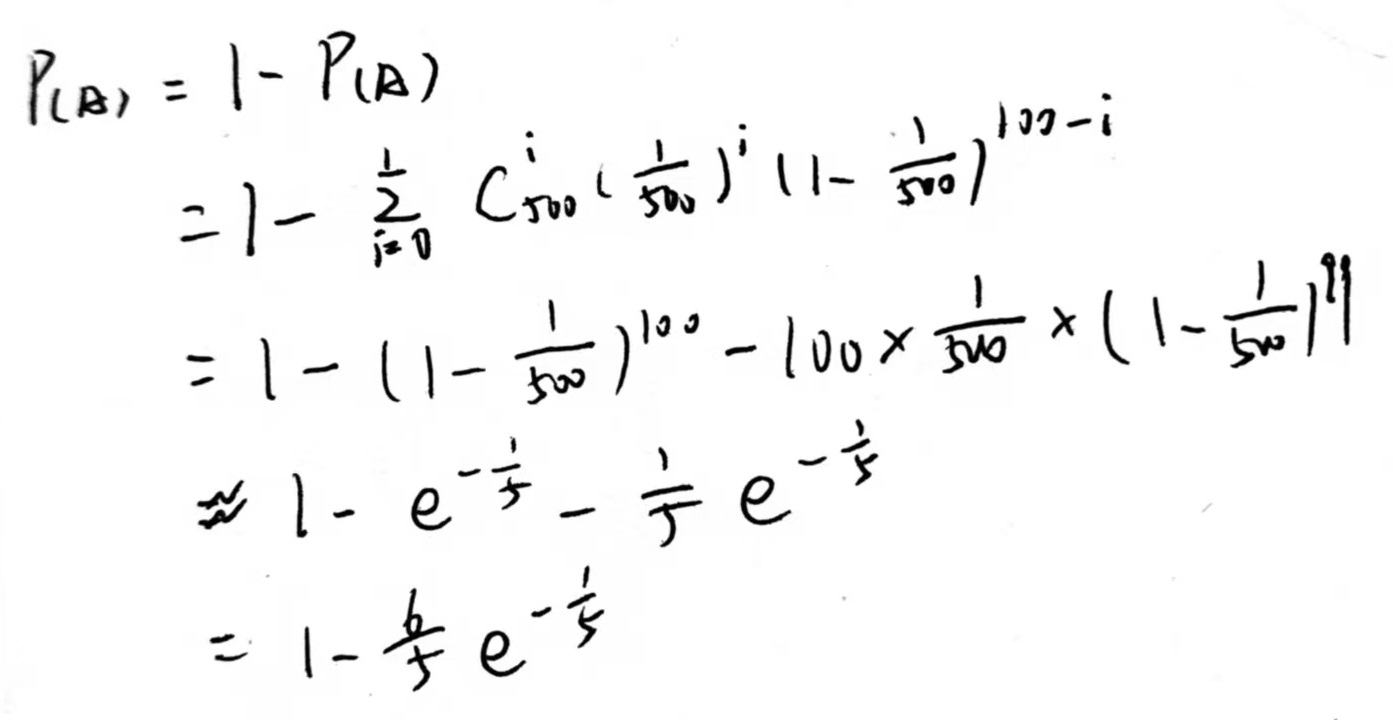 P(A) = 1 - P(A)
= 1 - \sum_{i=0}^{1} C_{500}^{i} (\frac{1}{500})^{i} (1 - \frac{1}{500})^{100-i}
= 1 - (1 - \frac{1}{500})^{100} - 100 × \frac{1}{500} × (1 - \frac{1}{500})^{99}
≈ 1 - e^{-\frac{1}{5}} - \frac{1}{5} e^{-\frac{1}{5}}
= 1 - \frac{6}{5} e^{-\frac{1}{5}}